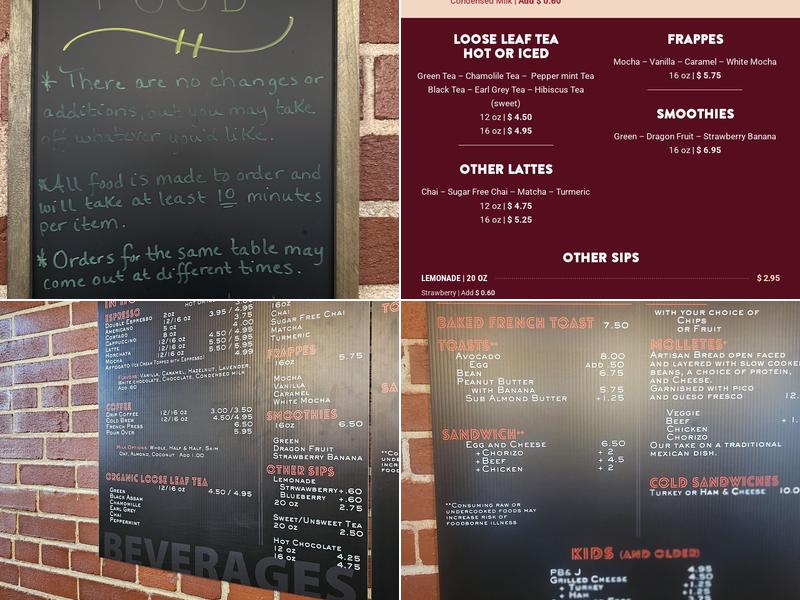 FOOD
* There are no changes or
additions, but you may take
off whatever you'd like.
* All food is made to order and
will take at least 10 minutes
per item.
* Orders for the same table may
come out at different times.
Condensed Milk | Add $ 0.60
LOOSE LEAF TEA
HOT OR ICED
Green Tea – Chamolile Tea – Pepper mint Tea
Black Tea – Earl Grey Tea – Hibiscus Tea
(sweet)
12 oz | $ 4.50
16 oz | $ 4.95
OTHER LATTES
Chai – Sugar Free Chai – Matcha – Turmeric
12 oz | $ 4.75
16 oz | $ 5.25
FRAPPES
Mocha – Vanilla – Caramel – White Mocha
16 oz | $ 5.75
SMOOTHIES
Green – Dragon Fruit – Strawberry Banana
16 oz | $ 6.95
OTHER SIPS
LEMONADE | 20 OZ $ 2.95
Strawberry | Add $ 0.60
ESPRESSO
Double Espresso 2oz 3.95 / 4.95
Americano 12/16 oz
Cortado 5 oz 4.00
Cappuccino 8 oz
Latte 12/16 oz
Horchata 12/16 oz
Mocha 12/16 oz
Affogato (Ice Cream Topped with Espresso) 4.99
Flavors: Vanilla, Caramel, Hazelnut, Lavender,
White chocolate, Chocolate, Condensed milk
Add .60
COFFEE
Drip Coffee 12/16 oz 3.00/3.50
Cold Brew 12/16 oz 4.50/4.95
French Press 6.50
Pour Over 5.95
Milk Options: Whole, Half & Half, Skim
Oat, Almond, Coconut Add 1.00
ORGANIC LOOSE LEAF TEA
12/16 oz 4.50 / 4.95
Green
Black Assam
Chamomille
Earl Grey
Chai
Peppermint
16oz
Chai
Sugar Free Chai
Matcha
Turmeric
FRAPPES
16oz 5.75
Mocha
Vanilla
Caramel
White Mocha
SMOOTHIES
16oz 6.50
Green
Dragon Fruit
Strawberry Banana
OTHER SIPS
Lemonade
Strwawberry+.60
Blueberry +.60
20 oz 2.75
Sweet/Unsweet Tea
20 oz 2.50
Hot Chocolate
12 oz 4.25
16 oz 4.75
BEVERAGES
BAKED FRENCH TOAST 7.50
TOASTS**
Avocado 8.00
Egg add .50
Bean 6.75
Peanut Butter
with Banana 5.75
Sub Almond Butter +1.25
SANDWICH**
Egg and Cheese 6.50
+Chorizo + 2
+Beef + 4.5
+Chicken + 2
**Consuming raw or
undercooked foods may
increase risk of
foodborne illness
with your choice of
Chips
or Fruit
MOLLETES*
Artisan Bread open faced
and layered with slow cooked
beans, a choice of protein,
and Cheese.
Garnished with pico
and queso fresco 12.
Veggie
Beef + 1.
Chicken
Chorizo
Our take on a traditional
mexican dish.
COLD SANDWICHES
Turkey or Ham & Cheese 10.0
KIDS (AND OLDER)
PB& J 4.95
Grilled Cheese 4.50
+ Turkey +1.25
+ Ham +1.25